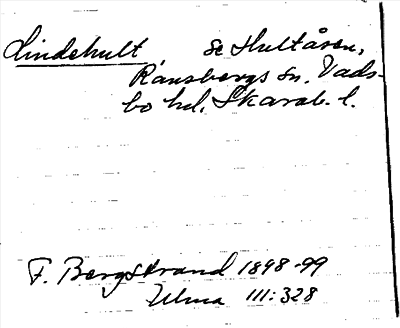 Lindehult, se Hultåsen,
Ransbergs sn. Vads-
bo hd. Skarab. l.
F. Bergstrand 1898-99
Ulma III:328